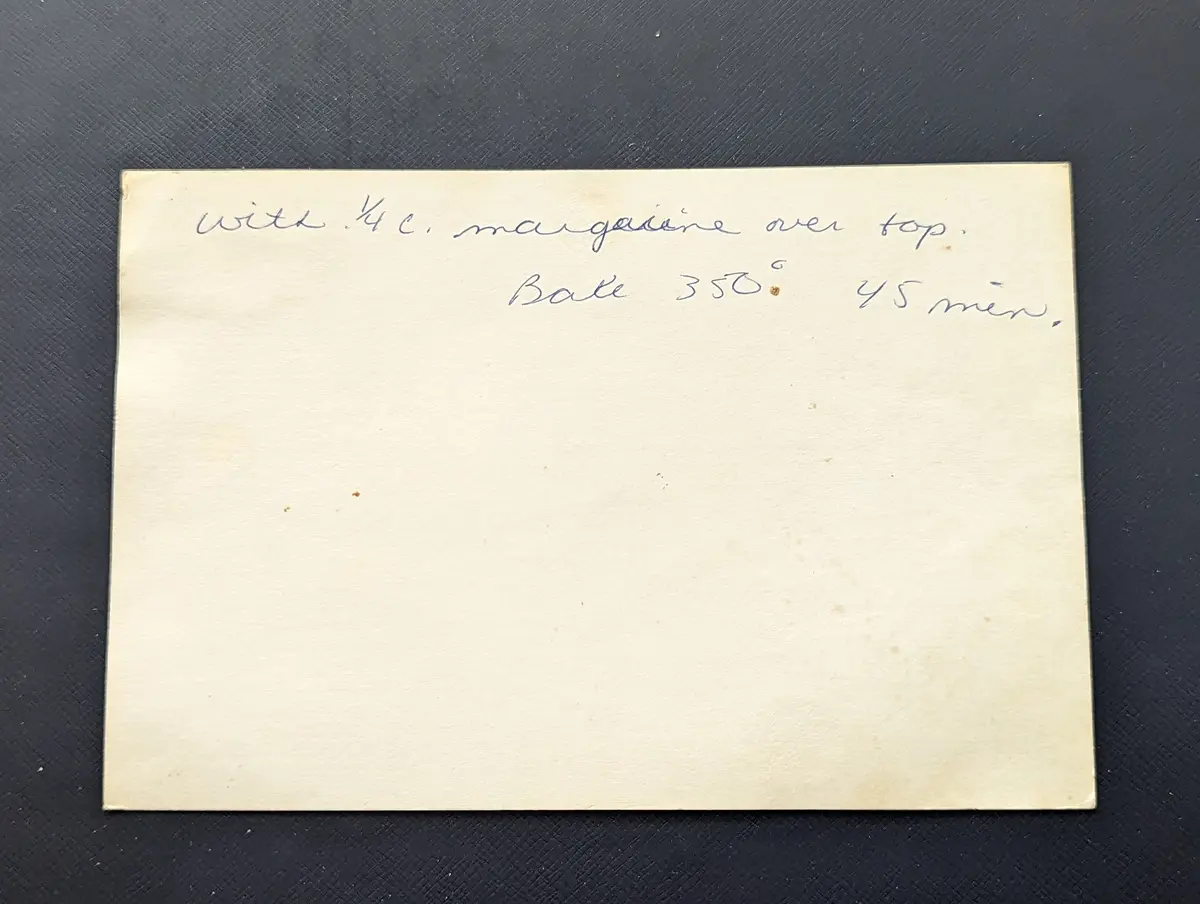 with 1/4 c. margarine over top.
Bake 350° 45 min.